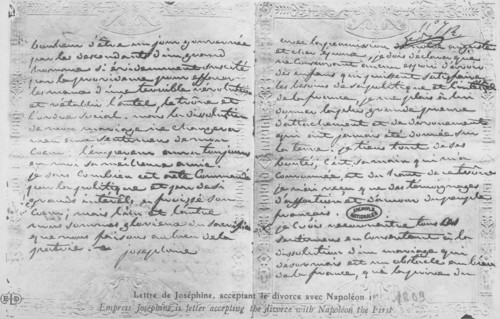 bonheur d'être un jour gouvernée
par les descendants d'un grand
homme si évidemment suscité
par la providence pour effacer
les maux d'une terrible revolution
et rétablir l'autel, le trône et
l'ordre social. mais la dissolution
de mon mariage ne changera
rien aux sentimens de mon
coeur. l'empereur aura toujours
en moi sa meilleure amie.
je sais combien cet acte commandé
par la politique et par de si
grands interets, a froissé son
coeur; mais l'un et l'autre
nous sommes glorieux du sacrifice
que nous faisons au bien de la
patrie
josephine
avec la permission de notre auguste
et cher époux, je dois déclarer que
ne conservant aucun espoir d'avoir
des enfans qui puissent satisfaire
les besoins de sa politique et l'intérêt
de la france, je me plais à lui
donner la plus grande preuve
d'attachement et de dévouement
qui ait jamais été donnée sur
la terre. je tiens tout de ses
bontés; c'est sa main qui m'a
couronnée, et du haut de ce trône
je n'ai reçu que des témoignages
d'affection et d'amour du peuple
français.
ARCHIVES NATIONALES
je crois reconnaître tous ces
sentimens en consentant à la
dissolution d'un mariage qui
desormais est un obstacle au bien
de la france, qui la prive du
Lettre de Joséphine, acceptant le divorce avec Napoléon Ier
1809
Empress Joséphine is letter accepting the divorce with Napoléon the First